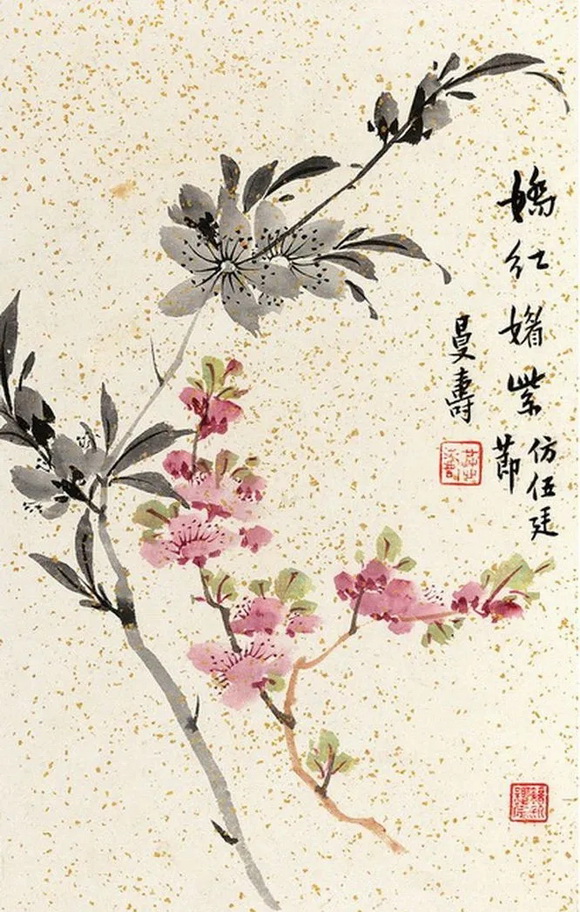 嬌红媚紫
仿伍廷
莭
曼壽